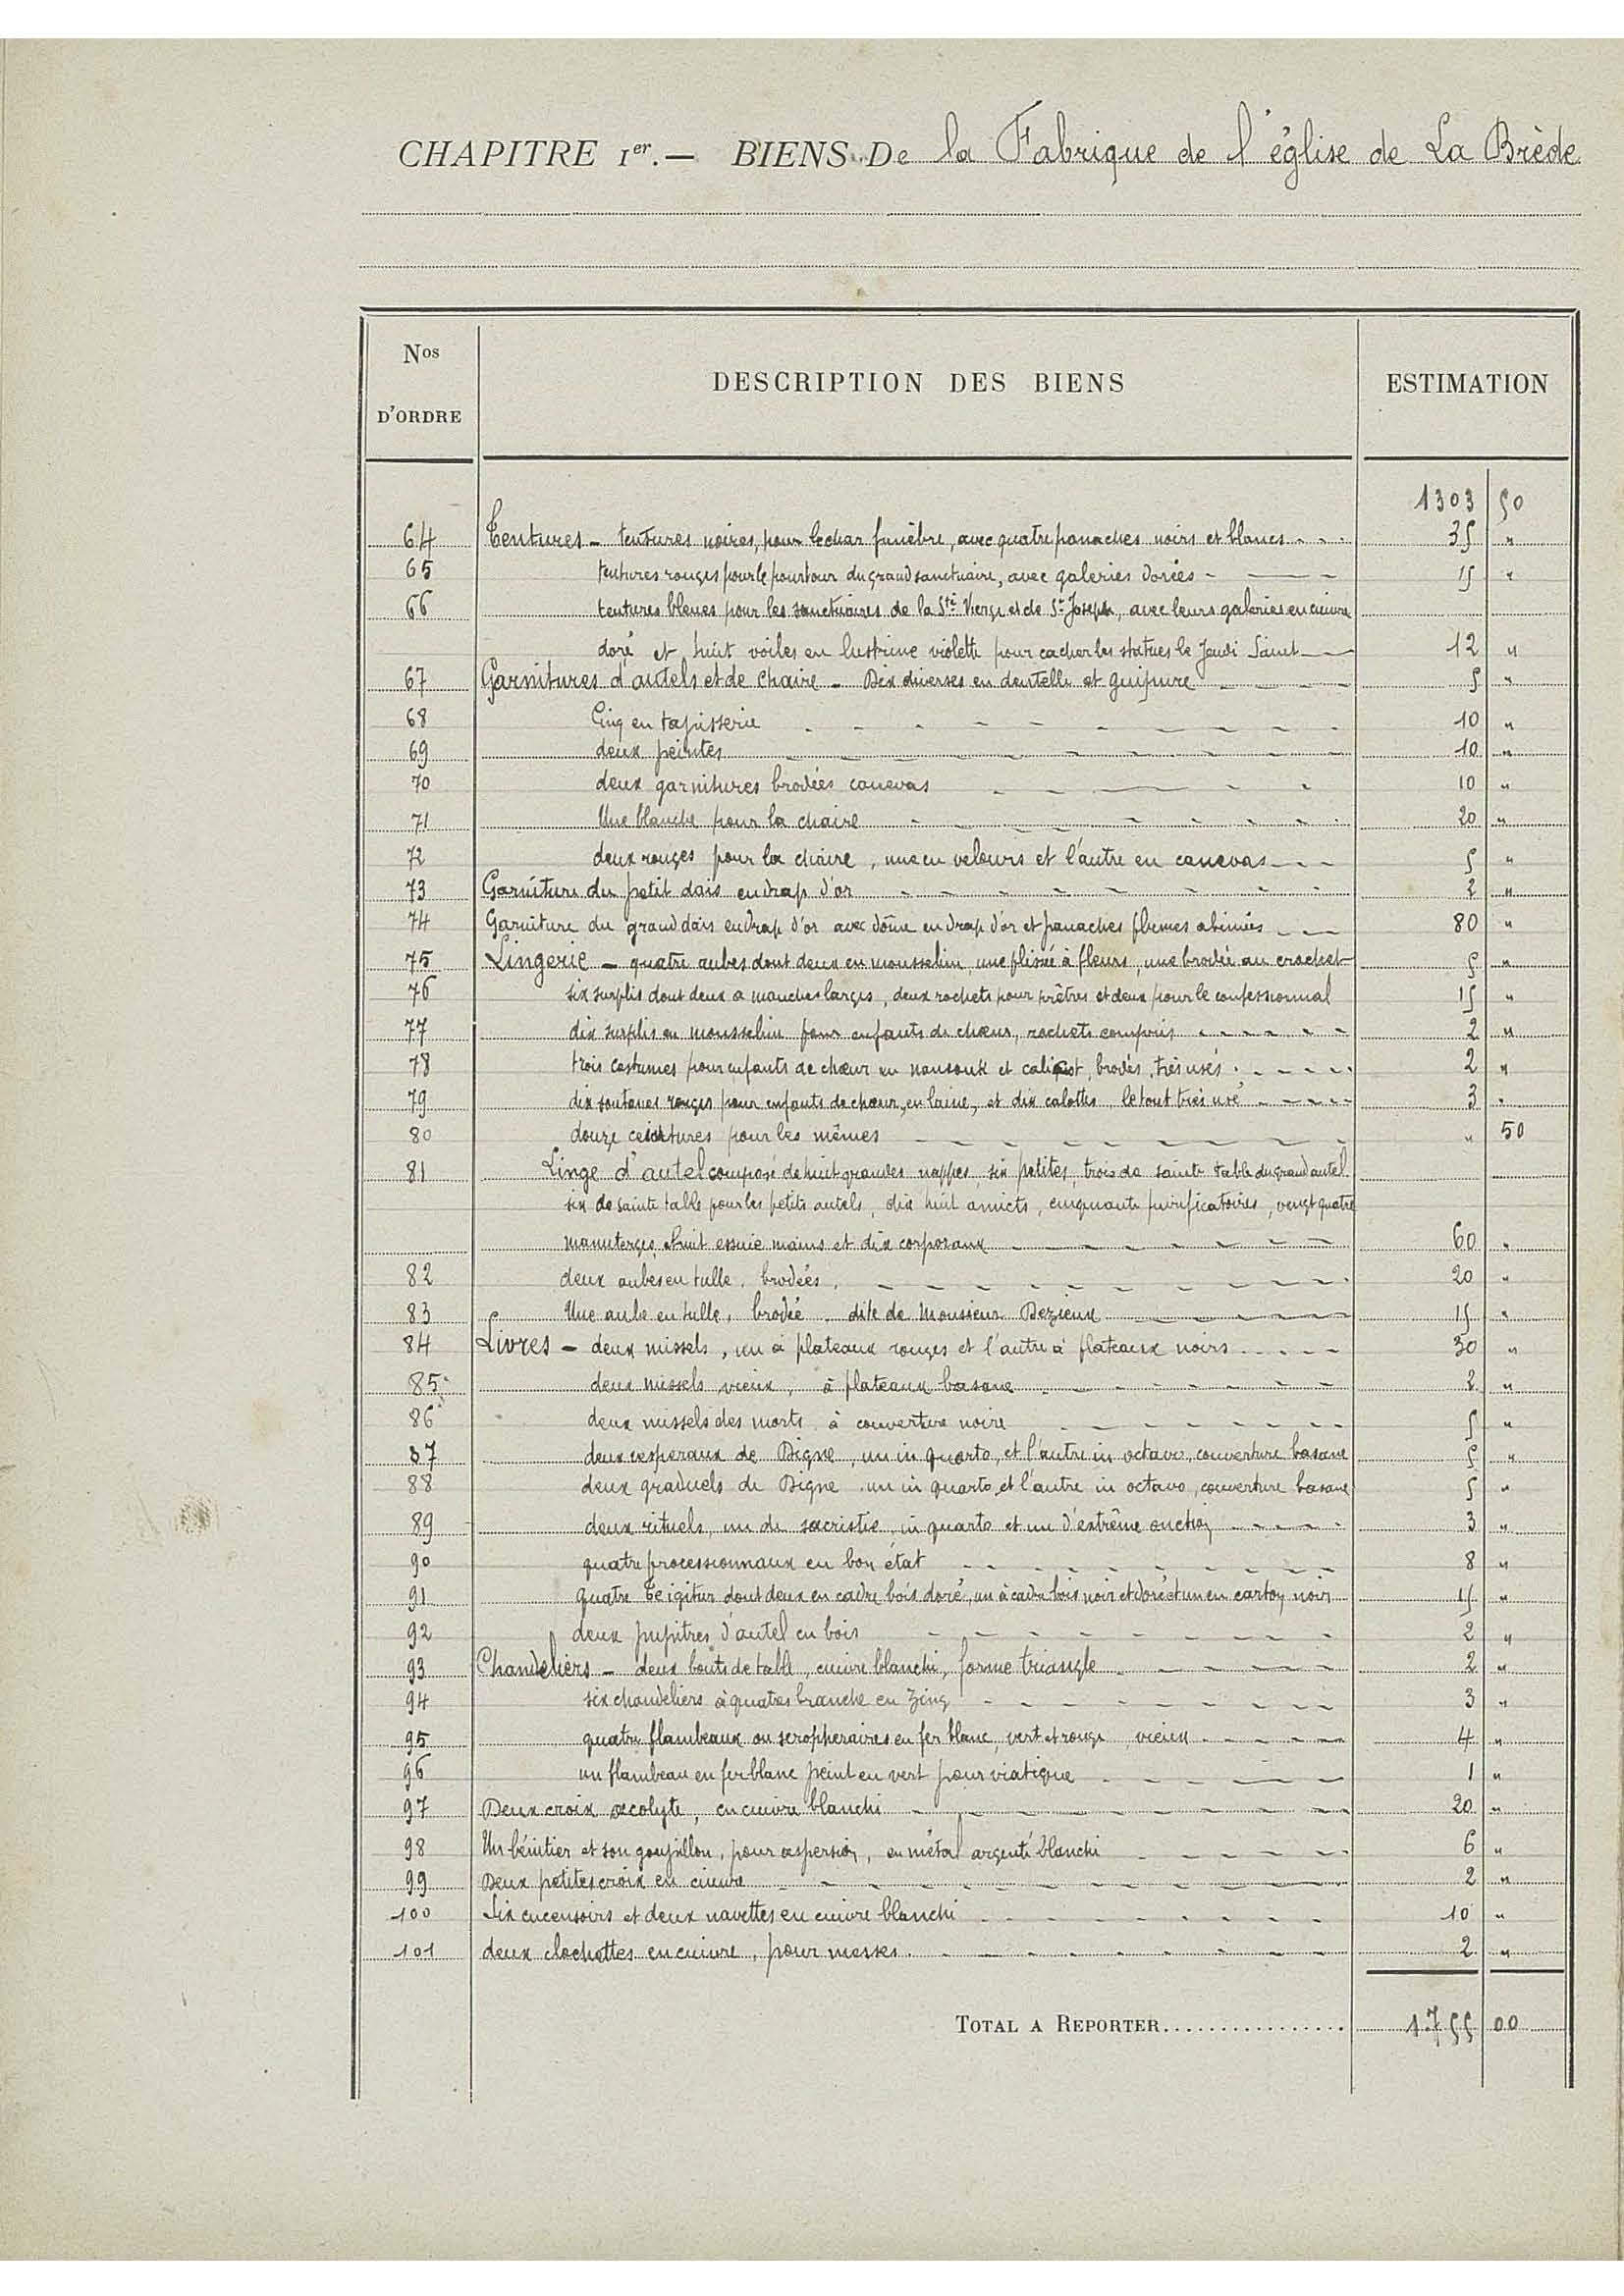 CHAPITRE 1er. — BIENS De la Fabrique de l'église de La Brède
Nos D'ORDRE DESCRIPTION DES BIENS ESTIMATION
1303 50
64 Tentures - tentures noires, pour le char funèbre, avec quatre panaches noirs et blancs 35 "
65 tentures rouges pour le pourtour du grand sanctuaire, avec galeries dorées 15 "
66 tentures bleues pour les sanctuaires de la Ste Vierge et de St Joseph, avec leurs galeries en cuivre
doré et huit voiles en lustrine violette pour cacher les statues le Jeudi Saint 12 "
67 Garnitures d'autels et de chaire - Dix diverses en dentelle et guipure 5 "
68 Cinq en tapisserie 10 "
69 deux peintes 10 "
70 deux garnitures brodées canevas 10 "
71 Une blanche pour la chaire 20 "
72 deux rouges pour la chaire, une en velours et l'autre en canevas 5 "
73 Garniture du petit dais en drap d'or 2 "
74 Garniture du grand dais en drap d'or avec dôme en drap d'or et panaches plumes abimés 80 "
75 Lingerie - quatre aubes dont deux en mousseline, une plissée à fleurs, une brodée au crochet 5 "
76 six surplis dont deux a manches larges, deux rochets pour prêtres et deux pour le confessionnal 15 "
77 dix surplis en mousseline pour enfants de chœur, rochets compris 2 "
78 trois costumes pour enfants de chœur en nansouk et calicot, brodés, très usés 2 "
79 dix soutanes rouges pour enfants de chœur, en laine, et dix calottes, le tout très usé 3 "
80 douze ceintures pour les mêmes " 50
81 Linge d'autel composé de huit grandes nappes, six petites, trois de sainte table du grand autel
six de sainte table pour les petits autels, dix huit amicts, cinquante purificatoires, vingt quatre
manuterges, huit essuie mains et dix corporaux 60 "
82 deux aubes en tulle, brodées, 20 "
83 Une aube en tulle, brodée, dite de Monsieur Dezieux 15 "
84 Livres - deux missels, un à plateaux rouges et l'autre à plateaux noirs 30 "
85 deux missels vieux, à plateaux basane 2 "
86 deux missels des morts à couverture noire 5 "
87 deux vesperaux de Digne, un in quarto, et l'autre in octavo, couverture basane 5 "
88 deux graduels de Digne, un in quarto, et l'autre in octavo, couverture basane 5 "
89 deux rituels, un de sacristie, in quarto et un d'extrême onction 3 "
90 quatre processionnaux en bon état 8 "
91 quatre Te igitur dont deux en cadre bois doré, un à cadre bois noir et doré et un en carton noir 15 "
92 deux pupitres d'autel en bois 2 "
93 Chandeliers - deux bouts de table, cuivre blanchi, forme triangle 2 "
94 six chandeliers à quatres branche en zing 3 "
95 quatre flambeaux ou seropheraires en fer blanc, vert et rouge, vieux 4 "
96 un flambeau en fer blanc peint en vert pour viatique 1 "
97 Deux croix acolyte, en cuivre blanchi 20 "
98 Un bénitier et son goupillon, pour aspersion, en métal argenté blanchi 6 "
99 Deux petites croix en cuivre 2 "
100 Six encensoirs et deux navettes en cuivre blanchi 10 "
101 deux clochettes en cuivre, pour messes. 2 "
TOTAL A REPORTER 1755 00